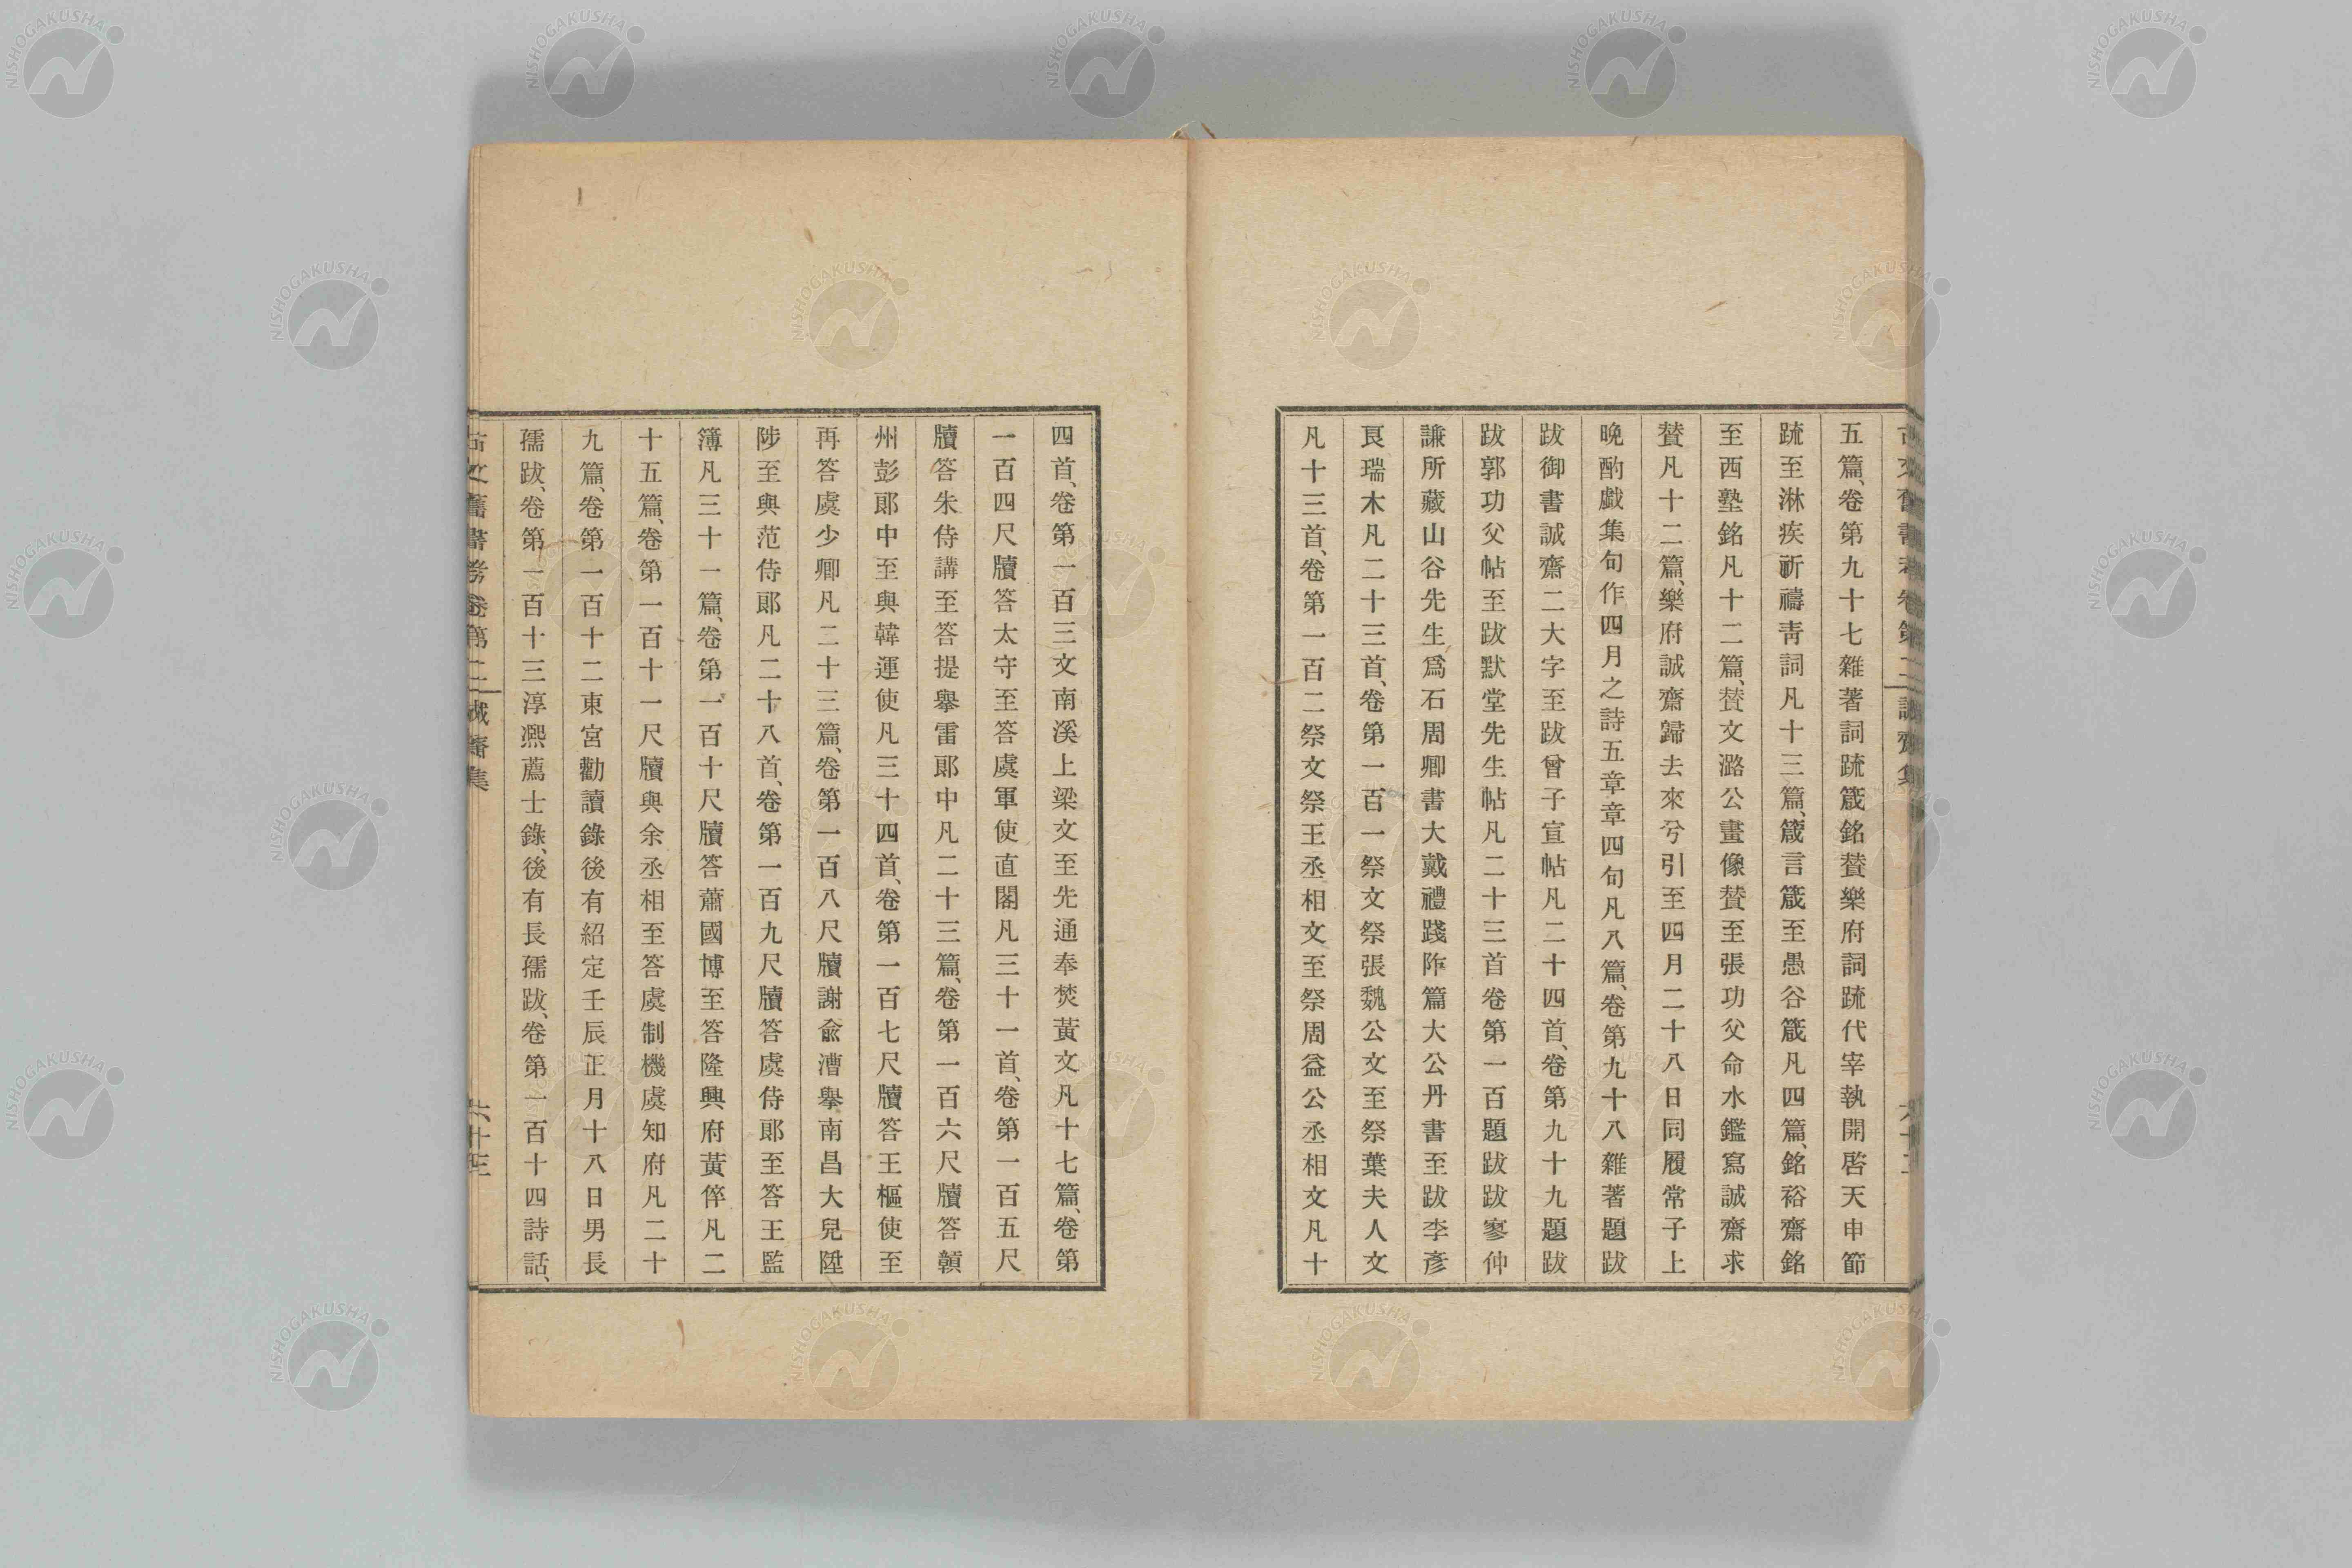 五篇、卷第九十七雜著詞疏箴銘贊樂府詞疏代宰執開啓天申節
疏至淋疾祈禱靑詞凡十三篇、箴言箴至愚谷箴凡四篇、銘裕齋銘
至西塾銘凡十二篇、贊文潞公畫像贊至張功父命水鑑寫誠齋求
贊凡十二篇、樂府誠齋歸去來兮引至四月二十八日同履常子上
晚酌戲集句作四月之詩五章章四句凡八篇、卷第九十八雜著題跋
跋御書誠齋二大字至跋曾子宣帖凡二十四首、卷第九十九題跋
跋郭功父帖至跋默堂先生帖凡二十三首卷第一百題跋跋寥仲
謙所藏山谷先生爲石周卿書大戴禮踐阼篇大公丹書至跋李彥
良瑞木凡二十三首、卷第一百一祭文祭張魏公文至祭葉夫人文
凡十三首、卷第一百二祭文祭王丞相文至祭周益公丞相文凡十
四首、卷第一百三文南溪上梁文至先通奉焚黃文凡十七篇、卷第
一百四尺牘答太守至答虞軍使直閣凡三十一首、卷第一百五尺
牘答朱侍講至答提擧雷郞中凡二十三篇、卷第一百六尺牘答贛
州彭郞中至與韓運使凡三十四首、卷第一百七尺牘答王樞使至
再答虞少卿凡二十三篇、卷第一百八尺牘謝兪漕擧南昌大兒陞
陟至與范侍郞凡二十八首、卷第一百九尺牘答虞侍郞至答王監
簿凡三十一篇、卷第一百十尺牘答蕭國博至答隆興府黃倅凡二
十五篇、卷第一百十一尺牘與余丞相至答虞制機虞知府凡二十
九篇、卷第一百十二東宮勸讀錄後有紹定壬辰正月十八日男長
孺跋、卷第一百十三淳熈薦士錄、後有長孺跋、卷第一百十四詩話、
古文舊書考卷第二 誠齋集 六十三